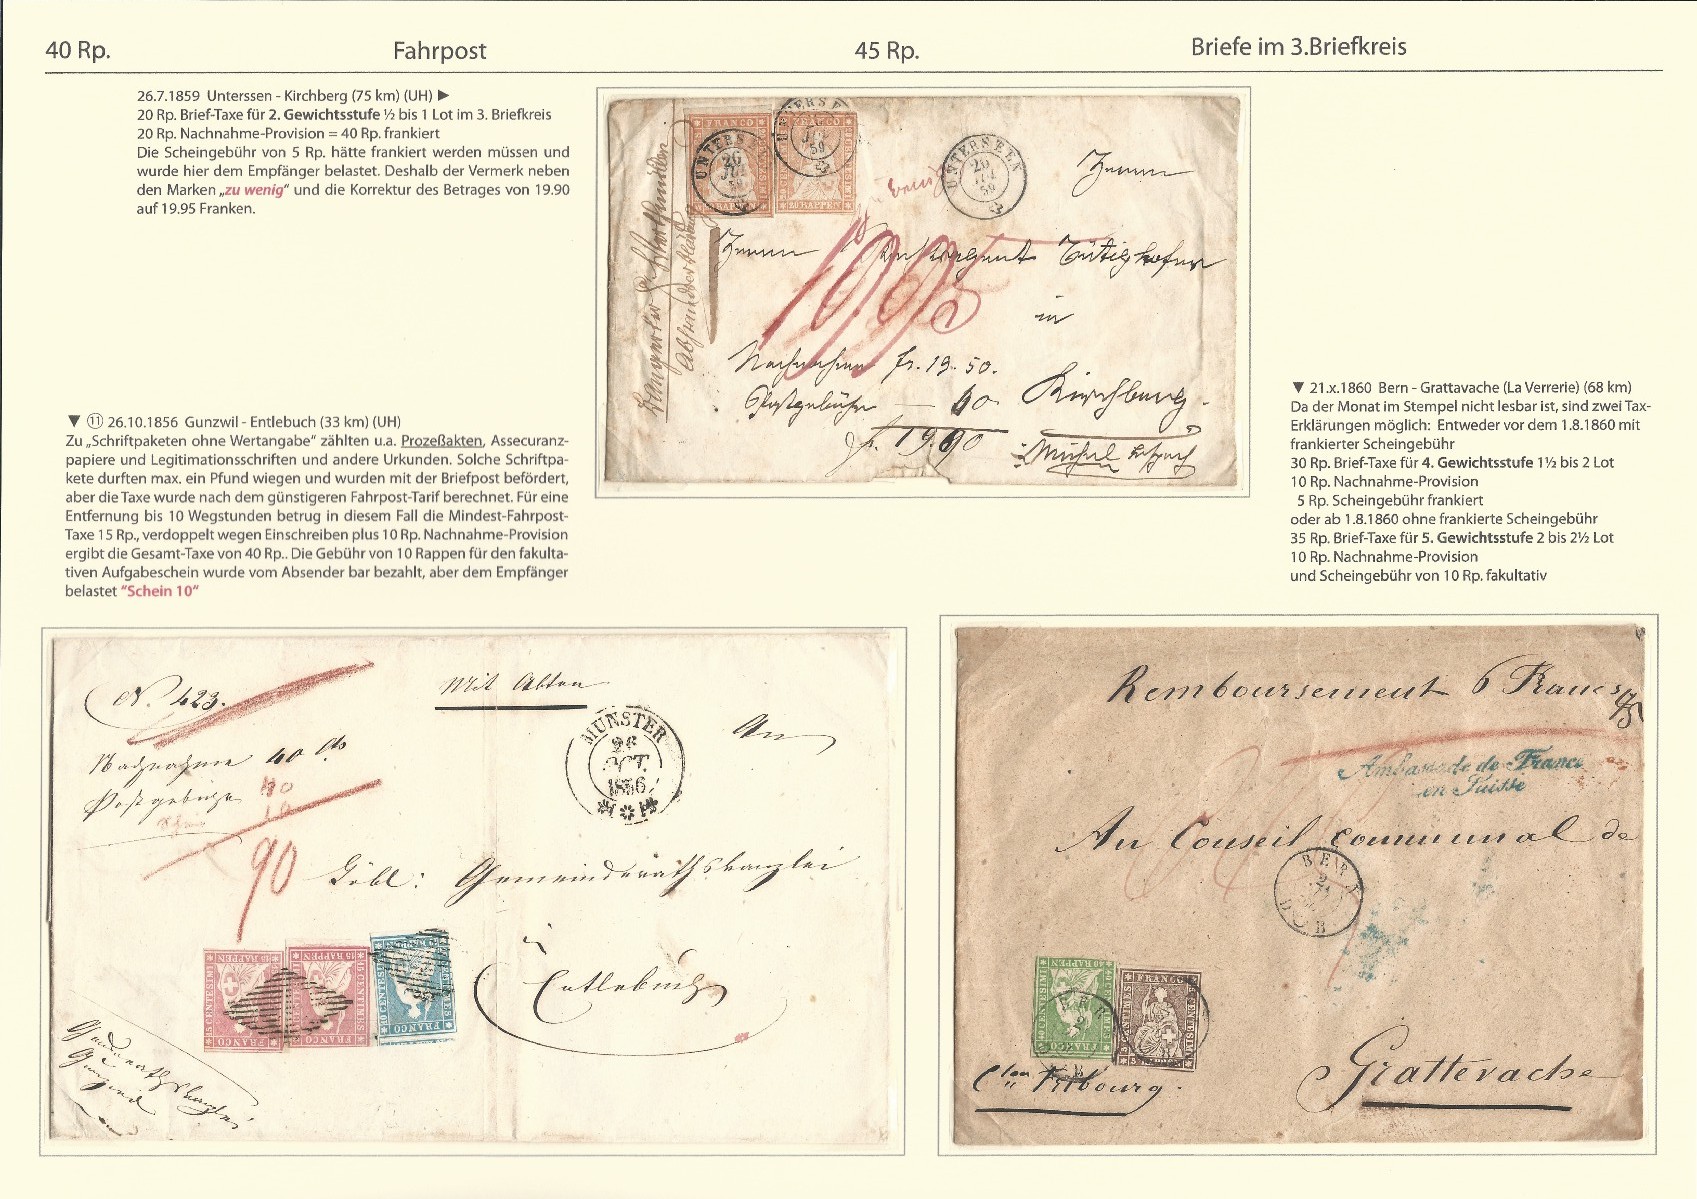 40 Rp. Fahrpost 45 Rp. Briefe im 3.Briefkreis
26.7.1859 Unterssen - Kirchberg (75 km) (UH) ▶
20 Rp. Brief-Taxe für 2. Gewichtsstufe ½ bis 1 Lot im 3. Briefkreis
20 Rp. Nachnahme-Provision = 40 Rp. frankiert
Die Scheingebühr von 5 Rp. hätte frankiert werden müssen und
wurde hier dem Empfänger belastet. Deshalb der Vermerk neben
den Marken „zu wenig“ und die Korrektur des Betrages von 19.90
auf 19.95 Franken.
FRANCO FRANCO
20 RAPPEN
UNTERSEEN
26
JUL
59
zu wenig
Herrn
Herrn
in
19.95
Nachnahme fr. 19.50.
Postgebühr — 40
fr. 19.90
Kirchberg.
▼ ⑪ 26.10.1856 Gunzwil - Entlebuch (33 km) (UH)
Zu „Schriftpaketen ohne Wertangabe“ zählten u.a. Prozeßakten, Assecuranz-
papiere und Legitimationsschriften und andere Urkunden. Solche Schriftpa-
kete durften max. ein Pfund wiegen und wurden mit der Briefpost befördert,
aber die Taxe wurde nach dem günstigeren Fahrpost-Tarif berechnet. Für eine
Entfernung bis 10 Wegstunden betrug in diesem Fall die Mindest-Fahrpost-
Taxe 15 Rp., verdoppelt wegen Einschreiben plus 10 Rp. Nachnahme-Provision
ergibt die Gesamt-Taxe von 40 Rp.. Die Gebühr von 10 Rappen für den fakulta-
tiven Aufgabeschein wurde vom Absender bar bezahlt, aber dem Empfänger
belastet "Schein 10"
▼ 21.x.1860 Bern - Grattavache (La Verrerie) (68 km)
Da der Monat im Stempel nicht lesbar ist, sind zwei Tax-
Erklärungen möglich: Entweder vor dem 1.8.1860 mit
frankierter Scheingebühr
30 Rp. Brief-Taxe für 4. Gewichtsstufe 1½ bis 2 Lot
10 Rp. Nachnahme-Provision
5 Rp. Scheingebühr frankiert
oder ab 1.8.1860 ohne frankierte Scheingebühr
35 Rp. Brief-Taxe für 5. Gewichtsstufe 2 bis 2½ Lot
10 Rp. Nachnahme-Provision
und Scheingebühr von 10 Rp. fakultativ
N. 423.
Mit Akten
MÜNSTER
26
OCT.
1856
An
Nachnahme 40
Postgebühr 40
Schein 10
90
Löbl: Gemeinderathskanzlei
in
Entlebuch
15 CENTESIMI RAPPEN FRANCO
15 CENTIMES RAPPEN FRANCO
10 CENTESIMI FRANCO
Remboursement 6 Francs
Ambassade de France
en Suisse
Au Conseil communal de
BERN
21
40 CENTESIMI 40 RAPPEN 40 CENTIMES FRANCO
FRANCO 5 CENTIMES
Con Fribourg.
Grattevache